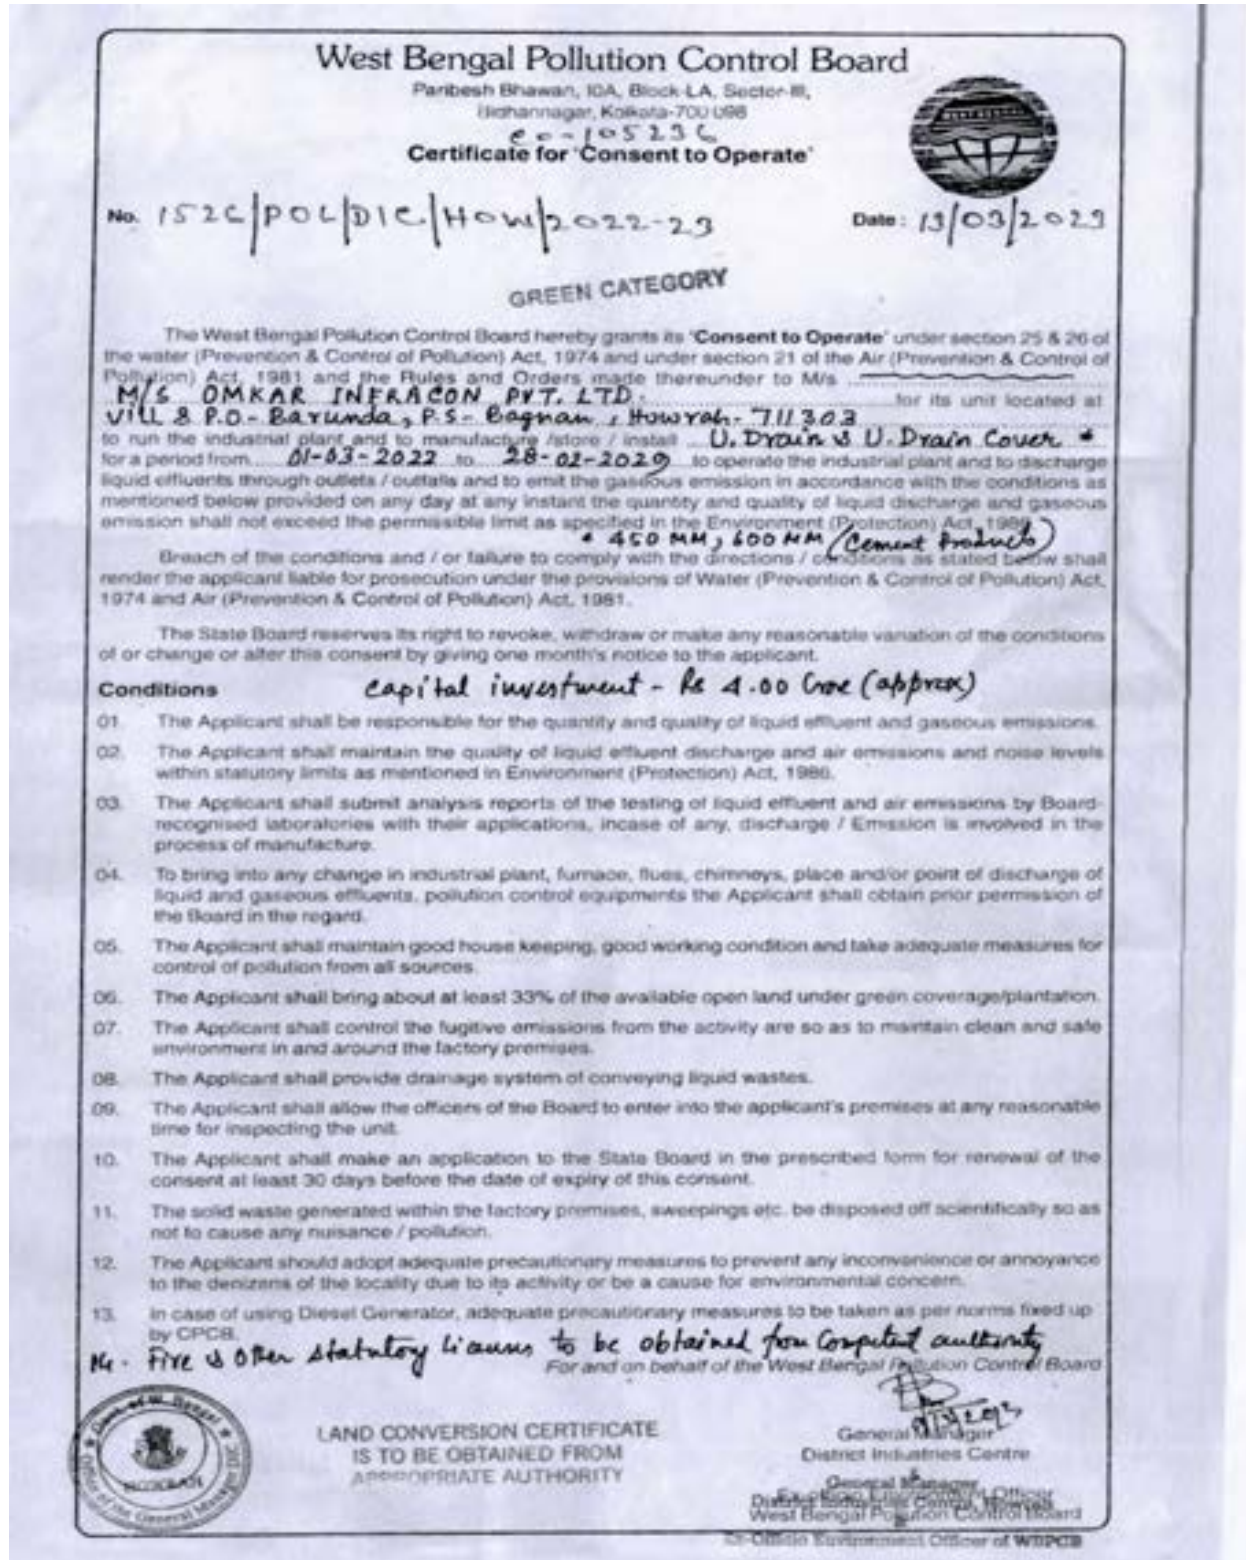 West Bengal Pollution Control Board
Paribesh Bhawan, 10A, Block-LA, Sector-III,
Bidhannagar, Kolkata-700 098
co-105236
Certificate for 'Consent to Operate'
No. 1526/POL/DIC/HOW/2022-23
Date : 13/03/2023
GREEN CATEGORY
The West Bengal Pollution Control Board hereby grants its 'Consent to Operate' under section 25 & 26 of
the water (Prevention & Control of Pollution) Act, 1974 and under section 21 of the Air (Prevention & Control of
Pollution) Act, 1981 and the Rules and Orders made thereunder to M/s
M/S OMKAR INFRACON PVT. LTD. for its unit located at
VILL & P.O- Barunda, P.S- Bagnan, Howrah- 711303
to run the industrial plant and to manufacture /store / install U. Drain & U. Drain Cover *
for a period from 01-03-2022 to 28-02-2029 to operate the industrial plant and to discharge
liquid effluents through outlets / outfalls and to emit the gaseous emission in accordance with the conditions as
mentioned below provided on any day at any instant the quantity and quality of liquid discharge and gaseous
emission shall not exceed the permissible limit as specified in the Environment (Protection) Act, 1986.
* 450 MM, 600 MM (Cement Products)
Breach of the conditions and / or failure to comply with the directions / conditions as stated below shall
render the applicant liable for prosecution under the provisions of Water (Prevention & Control of Pollution) Act,
1974 and Air (Prevention & Control of Pollution) Act, 1981.
The State Board reserves its right to revoke, withdraw or make any reasonable variation of the conditions
of or change or alter this consent by giving one month's notice to the applicant.
Conditions capital investment - Rs 4.00 Crore (approx)
01. The Applicant shall be responsible for the quantity and quality of liquid effluent and gaseous emissions.
02. The Applicant shall maintain the quality of liquid effluent discharge and air emissions and noise levels
within statutory limits as mentioned in Environment (Protection) Act, 1986.
03. The Applicant shall submit analysis reports of the testing of liquid effluent and air emissions by Board-
recognised laboratories with their applications, incase of any, discharge / Emission is involved in the
process of manufacture.
04. To bring into any change in industrial plant, furnace, flues, chimneys, place and/or point of discharge of
liquid and gaseous effluents, pollution control equipments the Applicant shall obtain prior permission of
the Board in the regard.
05. The Applicant shall maintain good house keeping, good working condition and take adequate measures for
control of pollution from all sources.
06. The Applicant shall bring about at least 33% of the available open land under green coverage/plantation.
07. The Applicant shall control the fugitive emissions from the activity are so as to maintain clean and safe
environment in and around the factory premises.
08. The Applicant shall provide drainage system of conveying liquid wastes.
09. The Applicant shall allow the officers of the Board to enter into the applicant's premises at any reasonable
time for inspecting the unit.
10. The Applicant shall make an application to the State Board in the prescribed form for renewal of the
consent at least 30 days before the date of expiry of this consent.
11. The solid waste generated within the factory premises, sweepings etc. be disposed off scientifically so as
not to cause any nuisance / pollution.
12. The Applicant should adopt adequate precautionary measures to prevent any inconvenience or annoyance
to the denizens of the locality due to its activity or be a cause for environmental concern.
13. In case of using Diesel Generator, adequate precautionary measures to be taken as per norms fixed up
by CPCB.
14. Fire & Other statutory licenses to be obtained from Competent authority
For and on behalf of the West Bengal Pollution Control Board
Govt. of W. Bengal
Office of the General Manager
LAND CONVERSION CERTIFICATE
IS TO BE OBTAINED FROM
APPROPRIATE AUTHORITY
General Manager
District Industries Centre
General Manager
Ex-officio Environment Officer
District Industries Centre, Howrah
West Bengal Pollution Control Board
Ex-Officio Environment Officer of WBPCB